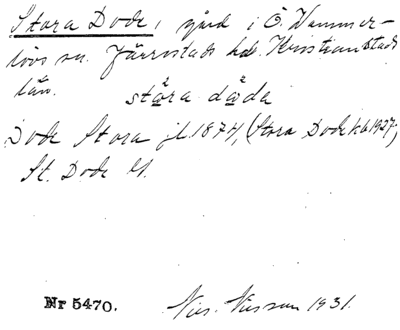 Stora Dode, gård i Ö. Vemmer-
lövs sn. Järrestads hd. Kristianstads
län.
stāra dāda
Dode Stora jb. 1874, (Stora Dode kb 1927,
St. Dode bl.
Nr 5470.
Nils. Nilsson 1931.